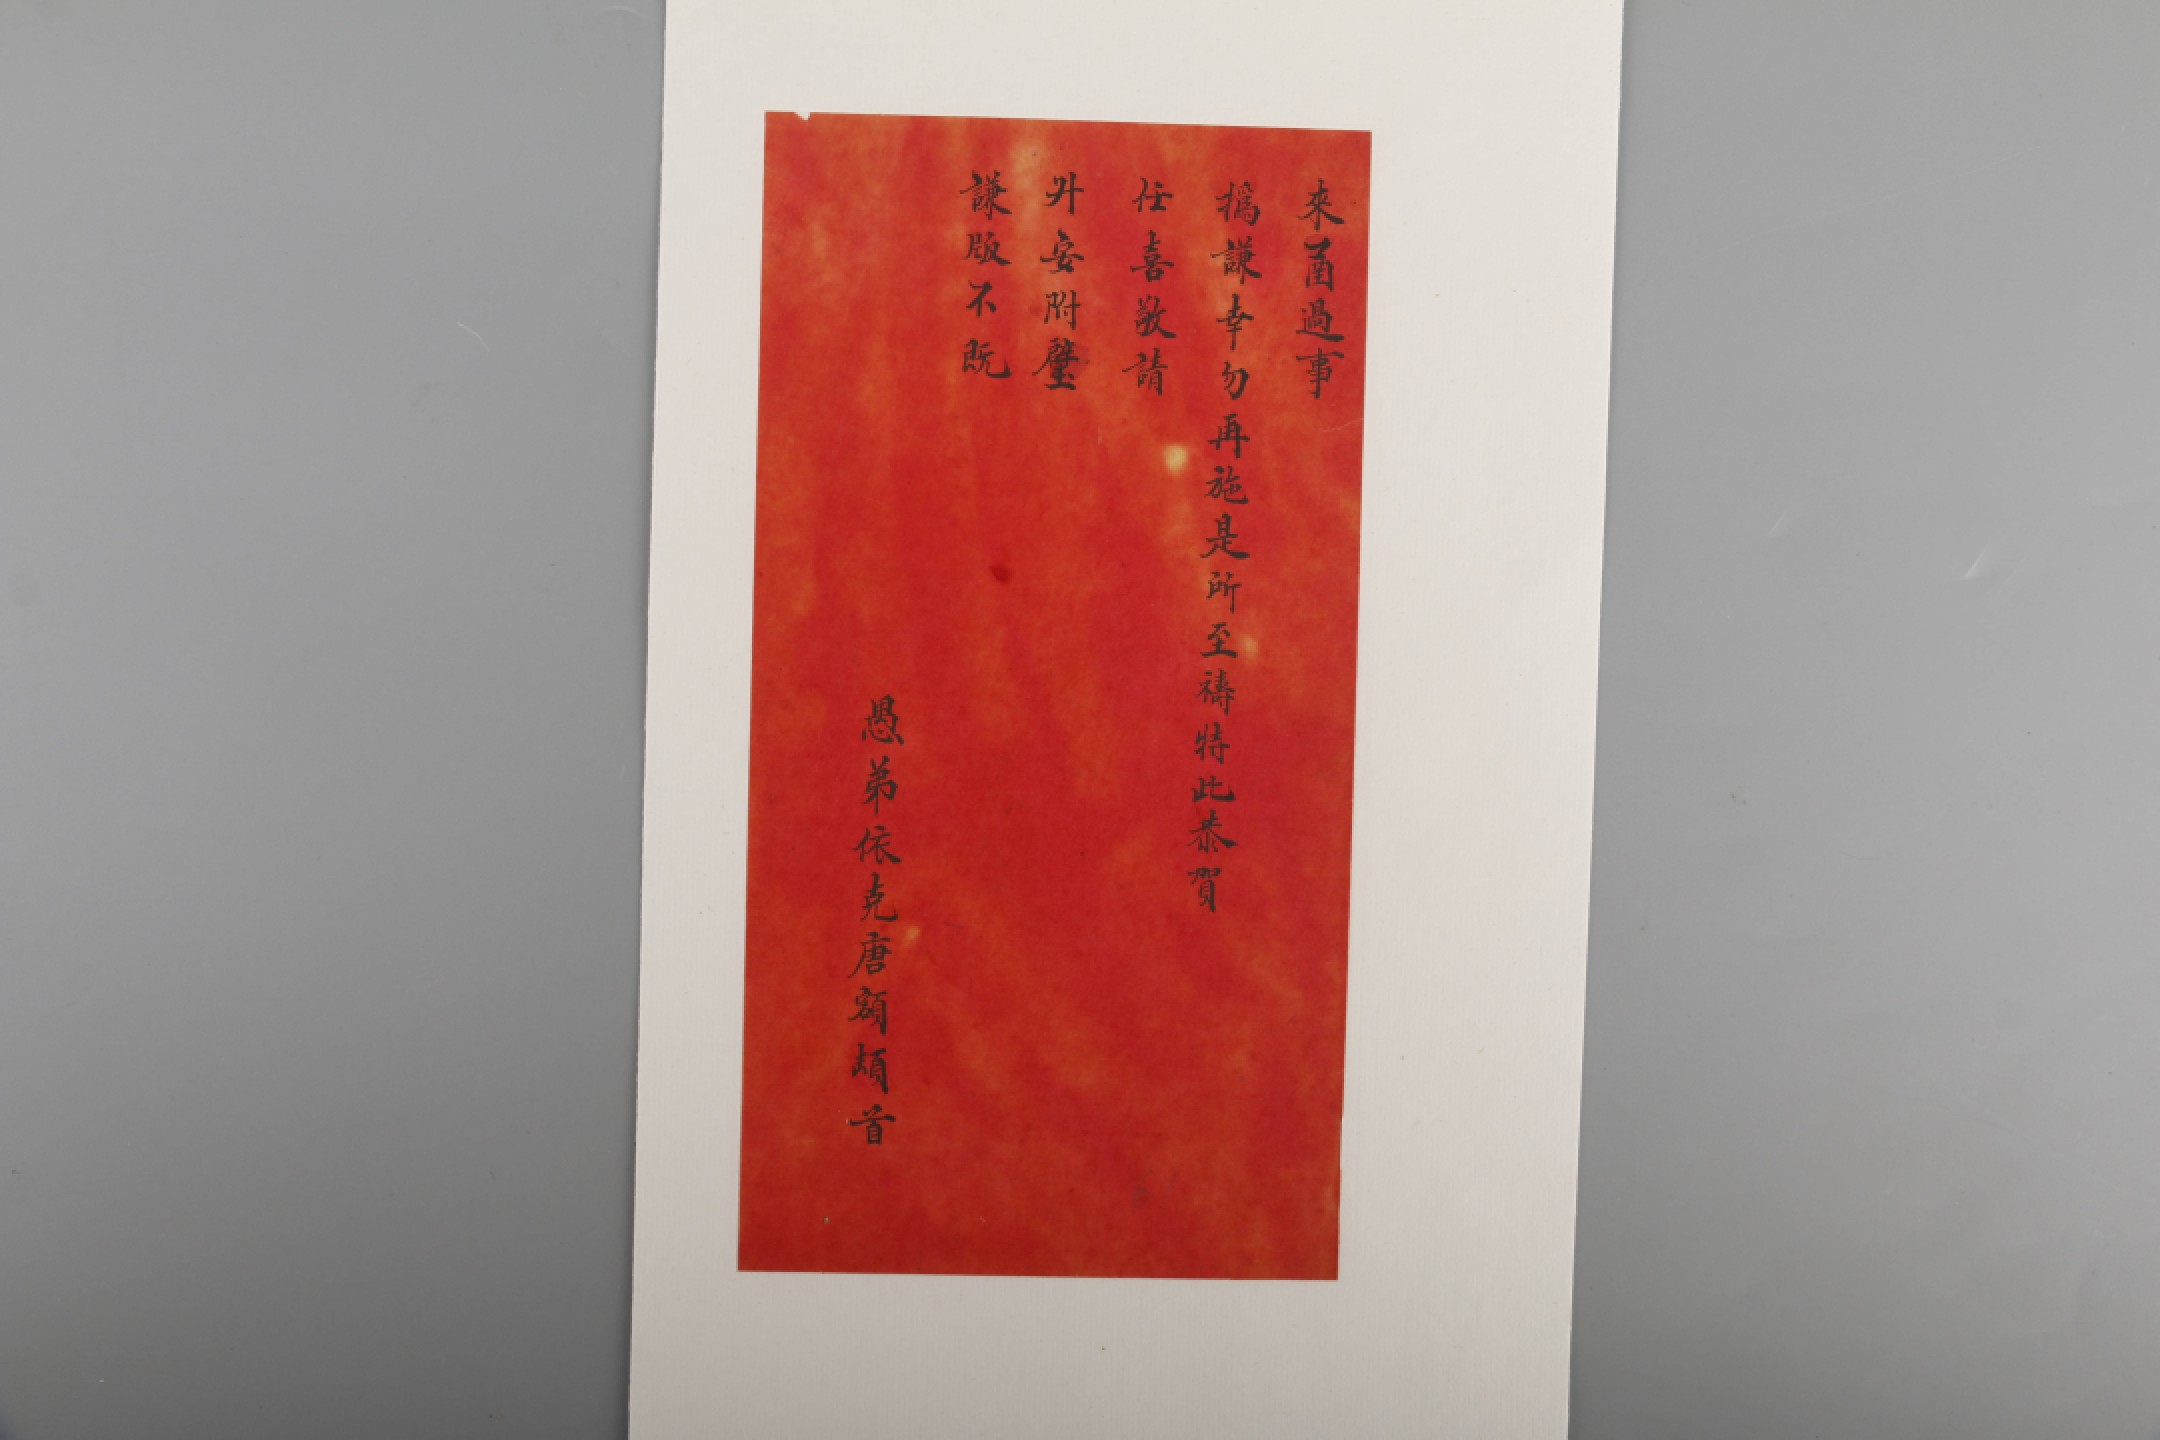 來圅過事
撝謙幸勿再施是所至禱特此恭賀
任喜敬請
升安附璧
謙版不既
愚弟依克唐額頓首